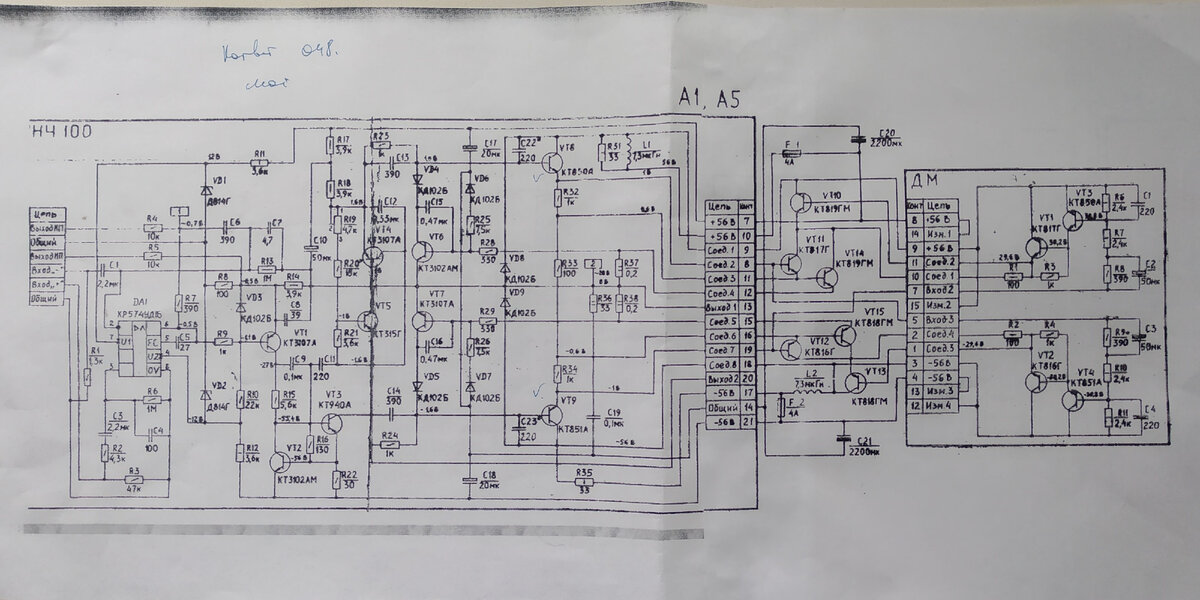 048.
А1, А5
НЧ 100
Цепь
Выход ИП
Общий
Выход ИП
Вход„-"
Вход„+"
Общий
C1
2,2мк
R1
1,3к
DA1
КР574УД1Б
R4
10к
R5
10к
R7
390
C5
27
R6
1М
C3
2,2мк
C4
100
R2
4,3к
R3
47к
12В
VD1
Д814Г
-0,7В
C6
390
C7
4,7
R11
3,6к
R13
1М
R8
100
VD3
КД102Б
R14
3,9к
R9
1к
C8
39
VT1
КТ3107А
VD2
Д814Г
-12В
R10
22к
R12
3,6к
C9
0,1мк
C11
220
R15
5,6к
VT3
КТ940А
VT2
КТ3102АМ
R16
130
R22
30
R17
3,9к
R18
3,9к
R19
4,7к
R20
R21
3,6к
C10
50мк
R23
1к
C13
390
C12
VT4
КТ3107А
VT5
КТ315Г
C14
390
R24
1к
VD4
КД102Б
C15
0,47мк
VT6
КТ3102АМ
VT7
КТ3107А
C16
0,47мк
VD5
КД102Б
C17
20мк
VD6
КД102Б
R25
7,5к
R28
330
R29
330
R26
7,5к
VD7
КД102Б
C18
20мк
VD8
КД102Б
VD9
КД102Б
C22*
220
VT8
КТ850А
R32
1к
R33
100
R34
1к
VT9
КТ851А
C23*
220
R35
33
R31
33
L1
7,3мкГн
R37
0,2
R36
33
R38
0,2
C19
0,1мк
Цепь Конт
+56В 7
+56В 10
Соед.1 9
Соед.2 8
Соед.3 11
Соед.4 12
Выход1 13
Соед.5 15
Соед.6 16
Соед.7 19
Соед.8 18
Выход2 20
-56В 17
Общий 14
-56В 21
F 1
4А
C20
2200мк
VT10
КТ819ГМ
VT11
КТ817Г
VT14
КТ819ГМ
VT15
КТ818ГМ
VT12
КТ816Г
VT13
КТ818ГМ
L2
7,3мкГн
F 2
4А
C21
2200мк
ДМ
Конт Цепь
8 +56В
14 Изм.1
9 +56В
11 Соед.2
10 Соед.1
7 Вход2
15 Изм.2
5 Вход3
2 Соед.4
1 Соед.3
3 -56В
4 -56В
13 Изм.3
12 Изм.4
VT1
КТ817Г
VT3
КТ850А
R1
100
R3
1к
R6
2,4к
R7
2,4к
R8
390
C1
220
C2
50мк
R2
100
R4
1к
VT2
КТ816Г
VT4
КТ851А
R9
390
R10
2,4к
R11
2,4к
C3
50мк
C4
220